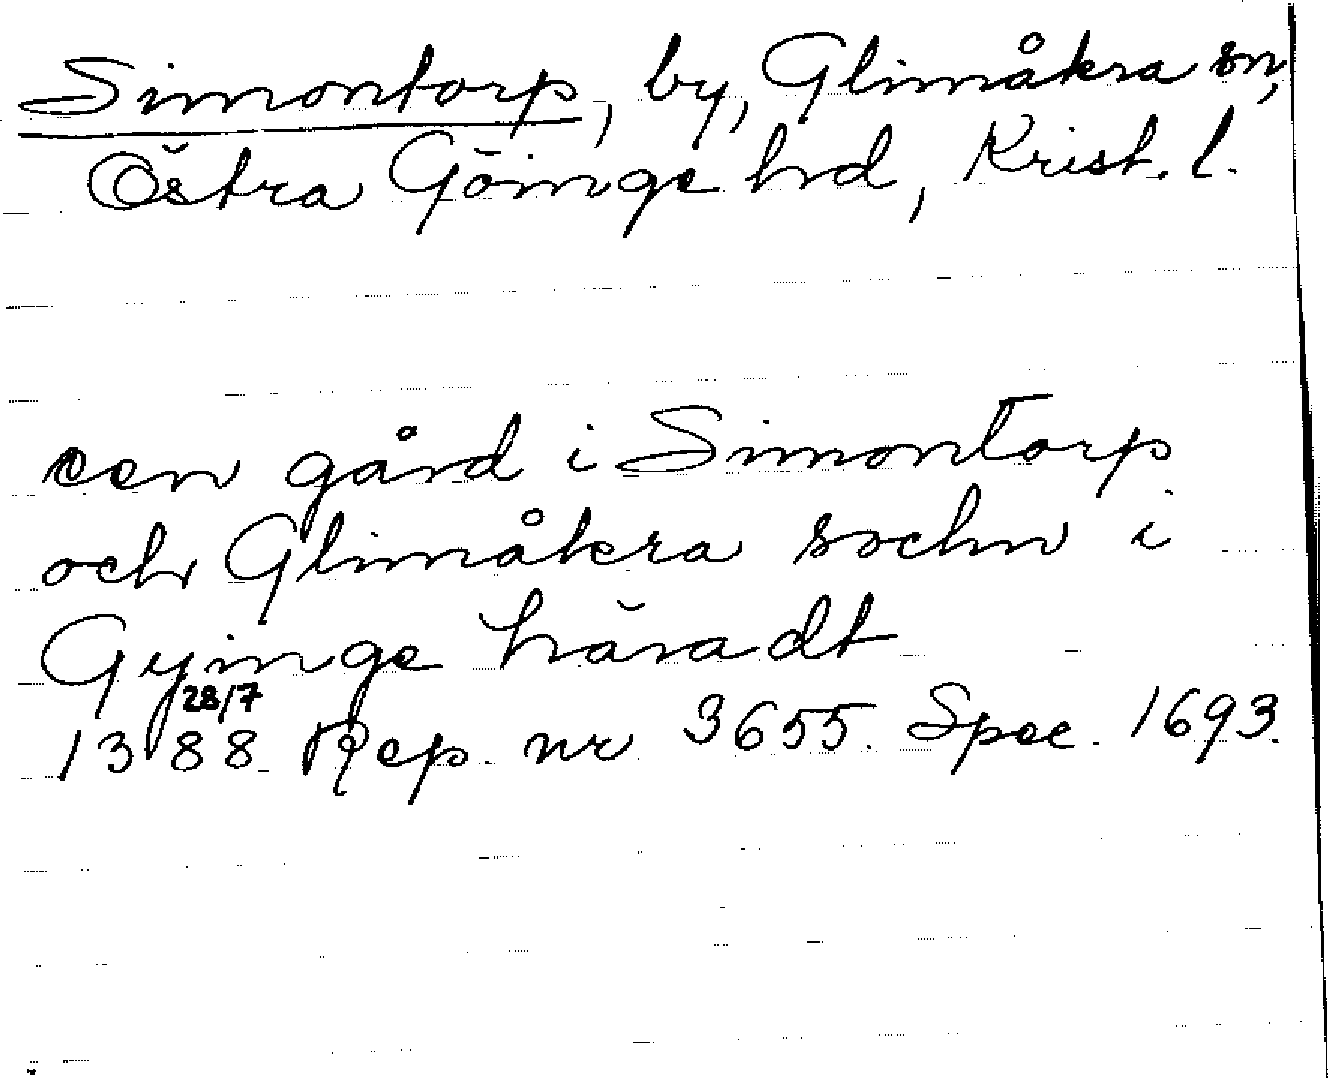 Simontorp, by, Glimåkra sn,
Östra Göinge hrd, Krist. l.
een gård i Simontorp
och Glimåkra sochn i
Gyinge häradt
28/7
1388 Rep. nr 3655. Spec. 1693.